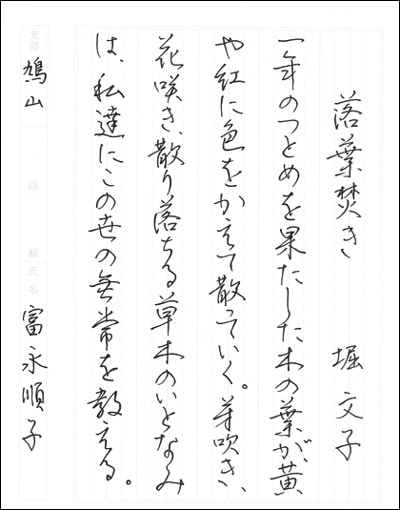 落葉焚き 堀文子
一年のつとめを果たした木の葉が、黄
や紅に色をかえて散っていく。芽吹き、
花咲き、散り落ちる草木のいとなみ
は、私達にこの世の無常を教える。
支部 鳩山 段 級 氏名 富永順子